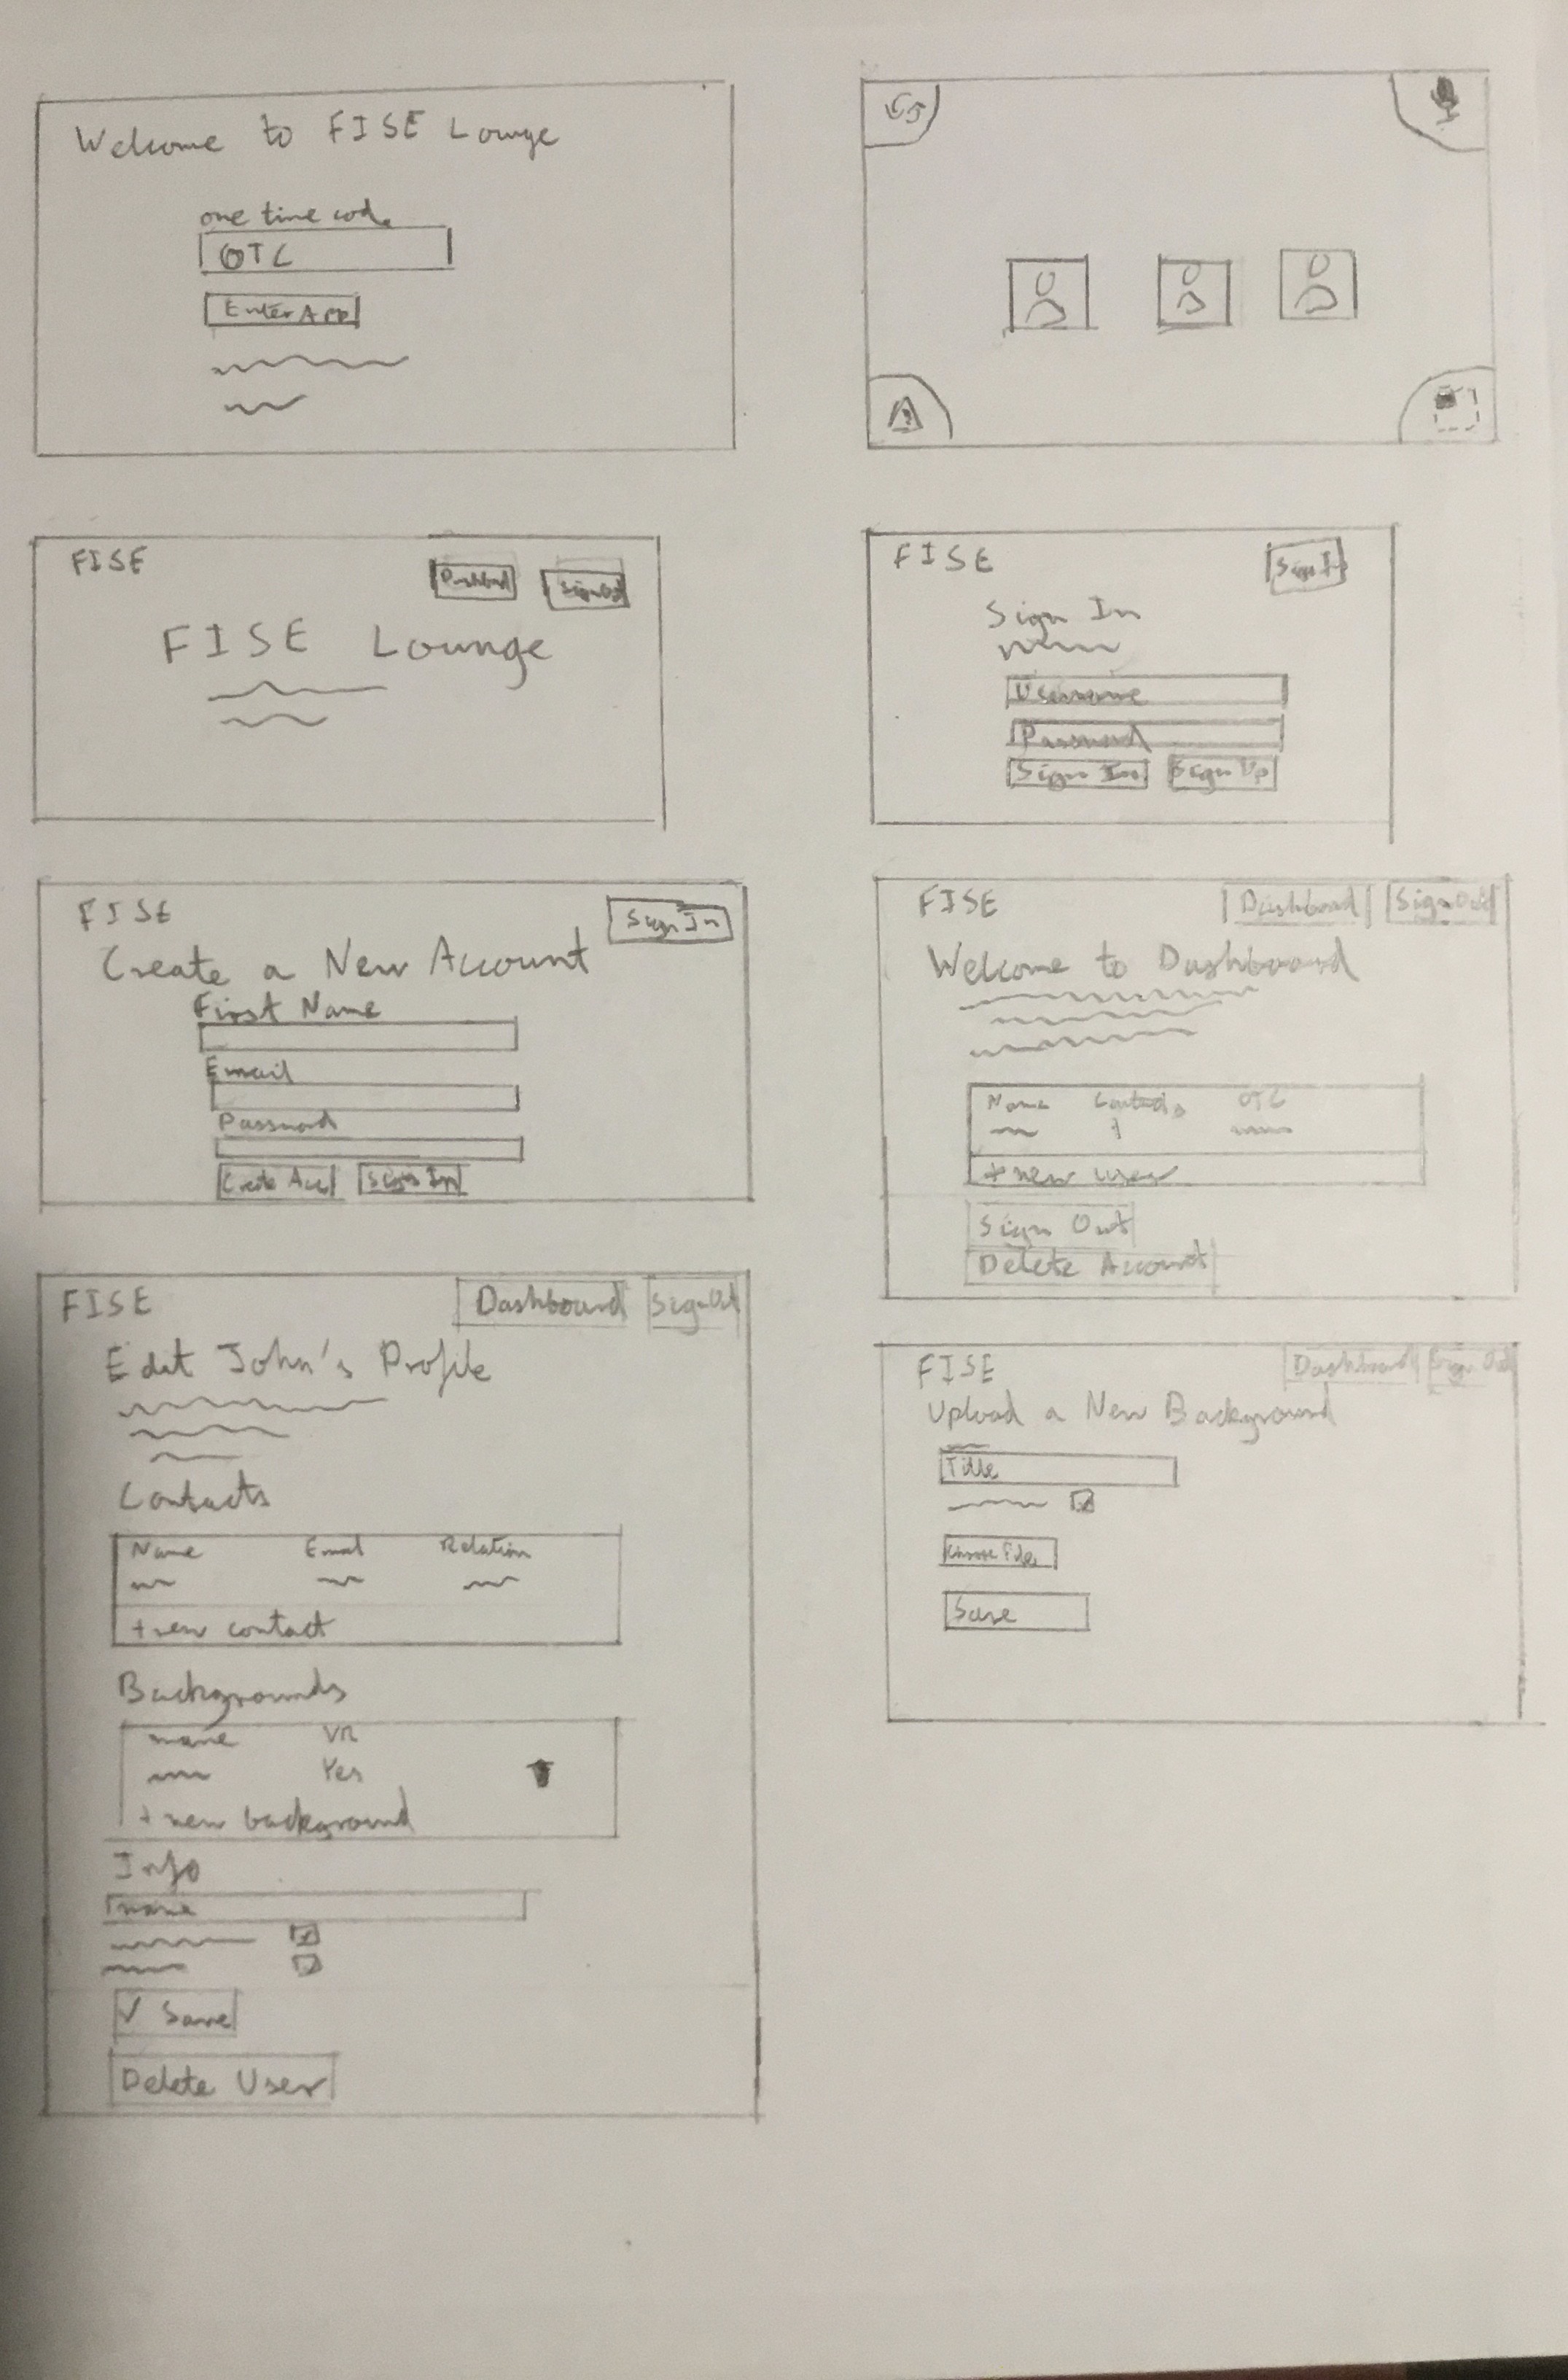 Welcome to FISE Lounge
one time code
OTC
Enter App
FISE
Dashboard
Sign Out
FISE Lounge
FISE
Sign In
Sign In
Username
Password
Sign In
Sign Up
FISE
Sign In
Create a New Account
First Name
Email
Password
Create Acc
Sign In
FISE
Dashboard
Sign Out
Welcome to Dashboard
Name Contacts OTC
1
+ new user
Sign Out
Delete Account
FISE
Dashboard
Sign Out
Edit John's Profile
Contacts
Name Email Relation
+ new contact
Backgrounds
name VR
Yes
+ new background
Info
name
✓ Save
Delete User
FISE
Dashboard
Sign Out
Upload a New Background
Title
Choose File
Save